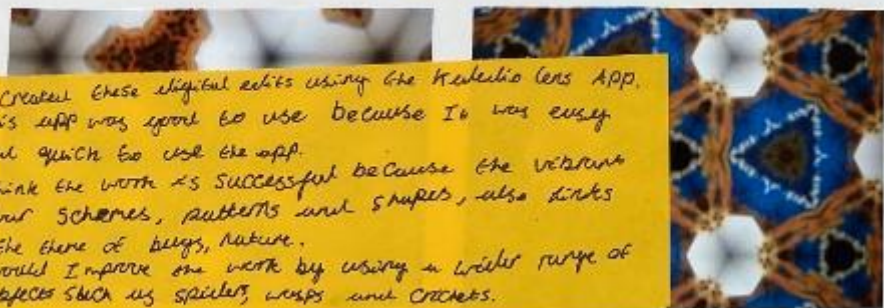 Created these digital edits using the Kaledio lens App.
is app was good to use because It was easy
quick to use the app.
ink the work is successful because the vibrant
ur schemes, patterns and shapes, also links
the theme of bugs, nature.
ould Improve the work by using a wider range of
bjects such as spiders, wasps and crickets.